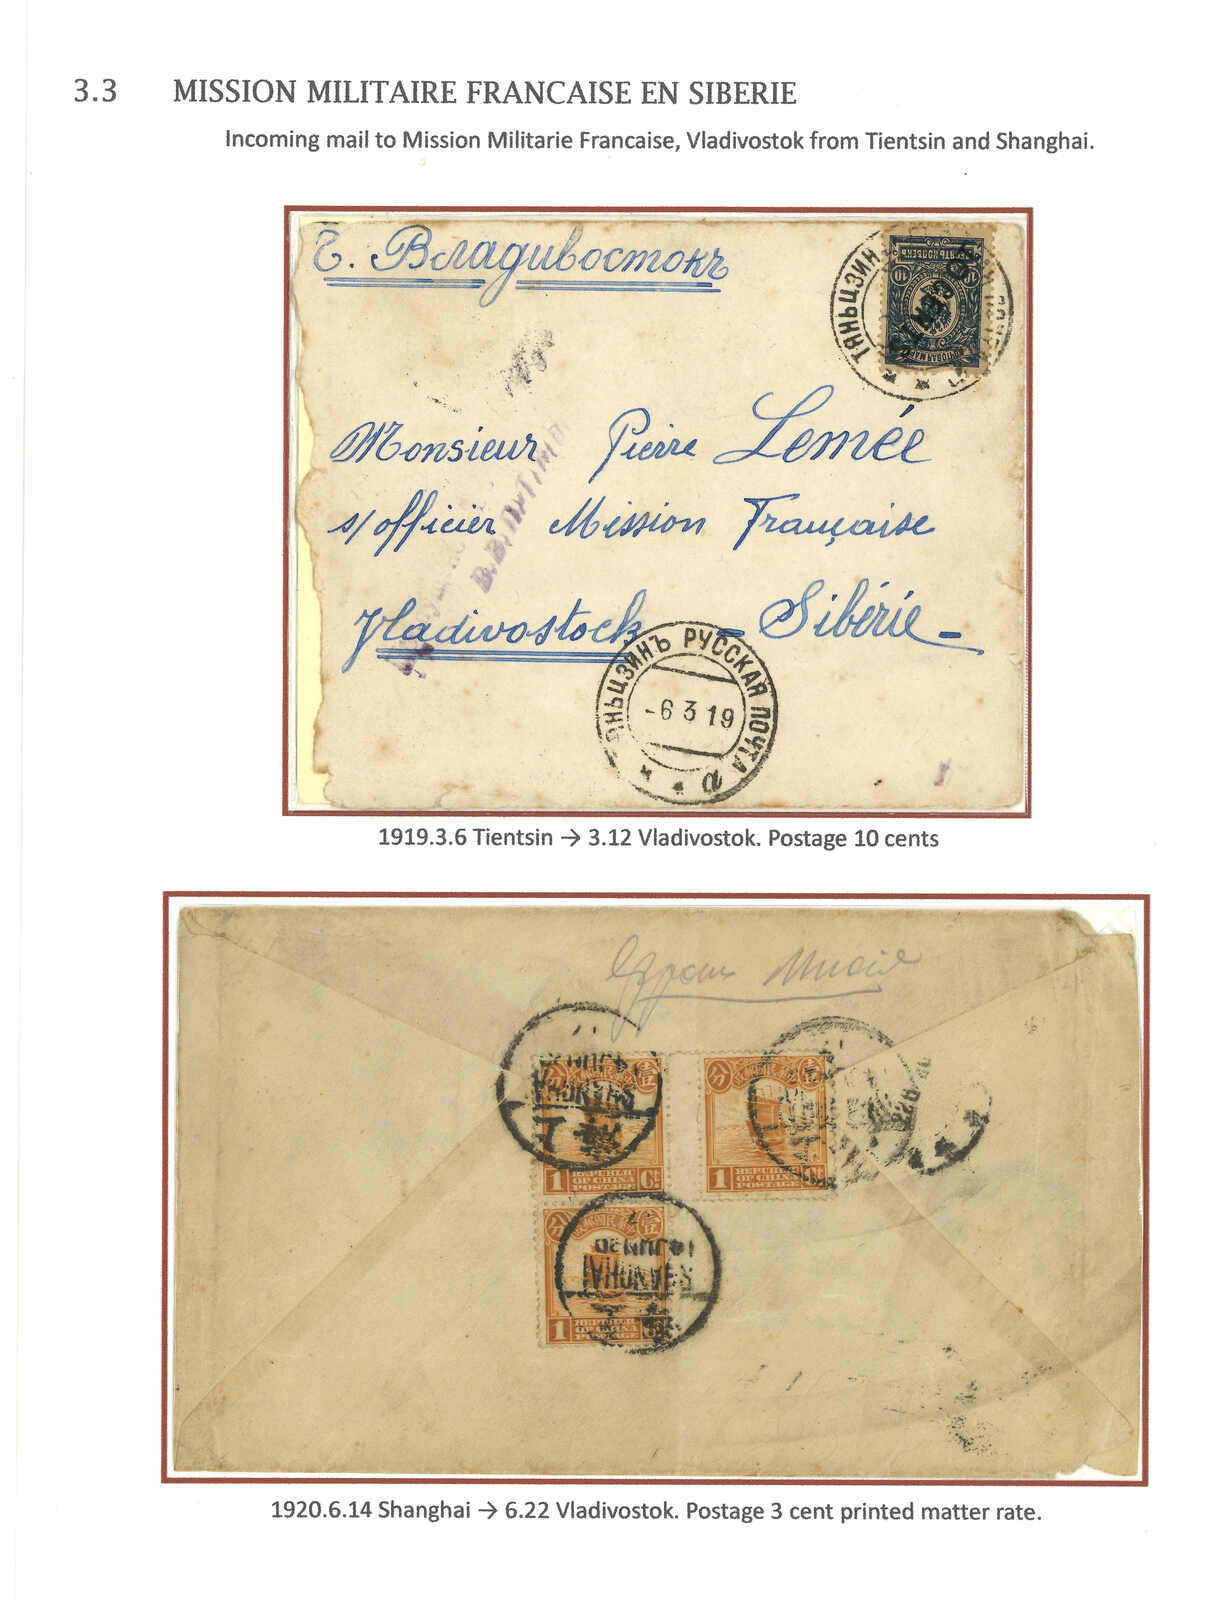 3.3 MISSION MILITAIRE FRANCAISE EN SIBERIE
Incoming mail to Mission Militarie Francaise, Vladivostok from Tientsin and Shanghai.
Г. Владивостокъ
ТЯНЬЦЗИНЪ
Monsieur Pierre Lemée
s/officier Mission Française
Vladivostock - Sibérie -
ТЯНЬЦЗИНЪ РУССКАЯ ПОЧТА
-6 3 19
1919.3.6 Tientsin → 3.12 Vladivostok. Postage 10 cents
SHANGHAI
1 REPUBLIC OF CHINA POSTAGE Ct
1 REPUBLIC OF CHINA POSTAGE Ct
14 JUN 20
SHANGHAI
1 REPUBLIC OF CHINA POSTAGE
1920.6.14 Shanghai → 6.22 Vladivostok. Postage 3 cent printed matter rate.